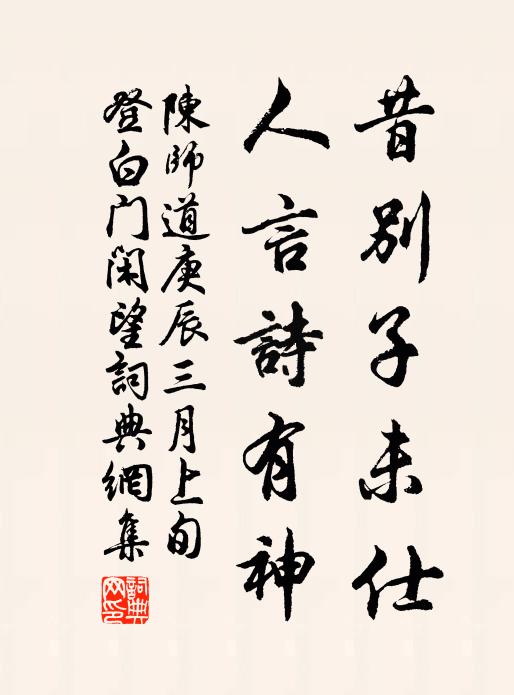 昔別子未仕
人言詩有神
陳師道庚辰三月上旬
登白门闲望詞典網集
詞典
网印